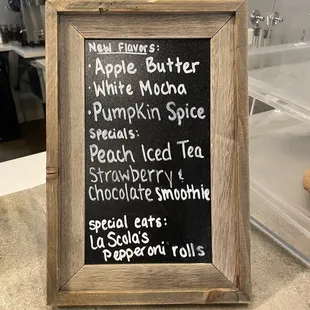 New Flavors:
· Apple Butter
· White Mocha
· Pumpkin Spice
Specials:
Peach Iced Tea
Strawberry &
Chocolate smoothie
special eats:
La Scala's
Pepperoni rolls